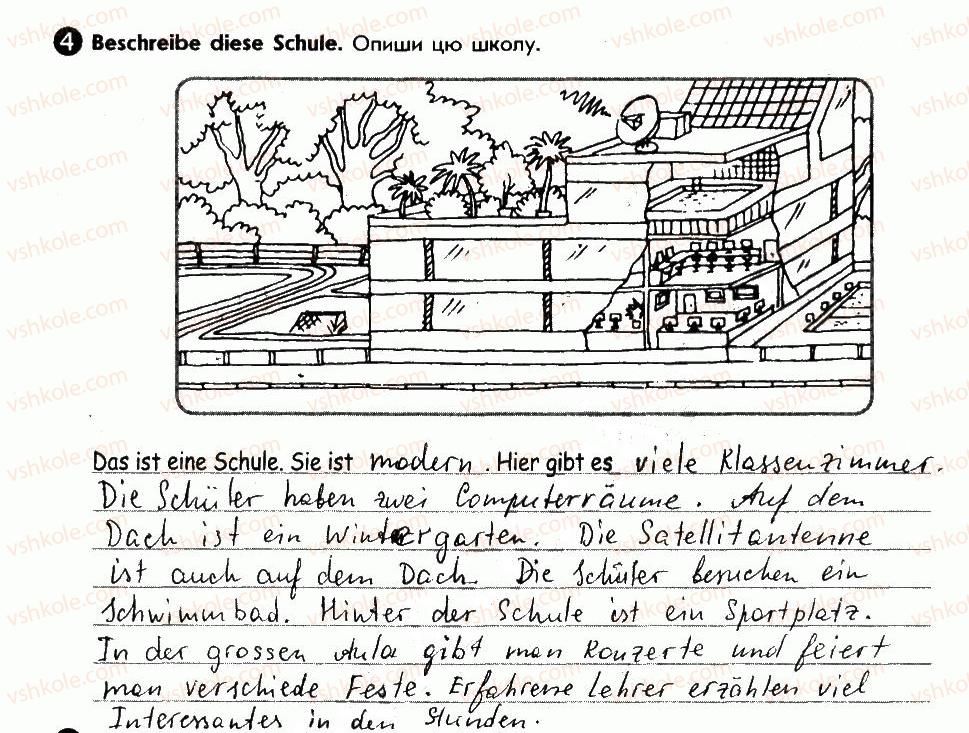 4 Beschreibe diese Schule. Опиши цю школу.
Das ist eine Schule. Sie ist modern. Hier gibt es viele Klassenzimmer.
Die Schüler haben zwei Computerräume. Auf dem
Dach ist ein Wintergarten. Die Satellitantenne
ist auch auf dem Dach. Die Schüler besuchen ein
Schwimmbad. Hinter der Schule ist ein Sportplatz.
In der grossen Aula gibt man Konzerte und feiert
man verschiede Feste. Erfahrene Lehrer erzählen viel
Interessantes in den Stunden.
vshkole.com